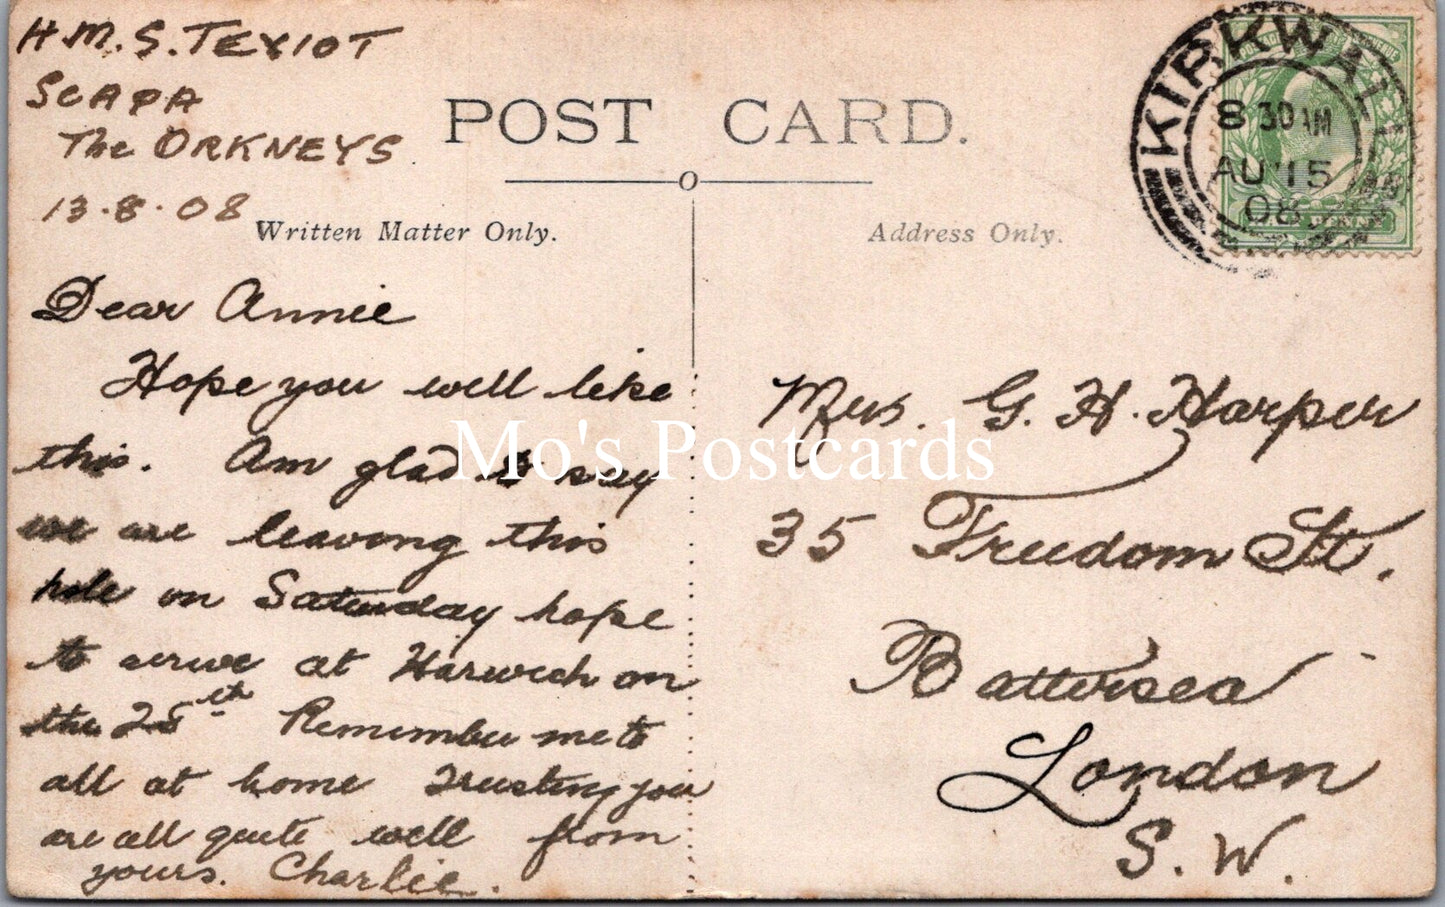 H.M.S. TEVIOT
SCAPA
The ORKNEYS
13.8.08
POST CARD.
Written Matter Only.
Address Only.
KIRKWALL
8 30 AM
AU 15
08
Dear Annie
Hope you well like
this. Am glad to say
we are leaving this
hole on Saturday hope
to arrive at Harwich on
the 25th Remember me to
all at home Trusting you
are all quite well from
yours. Charlie.
Mrs. G. H. Harper
35 Freedom St.
Battersea
London
S. W.
Mo's Postcards